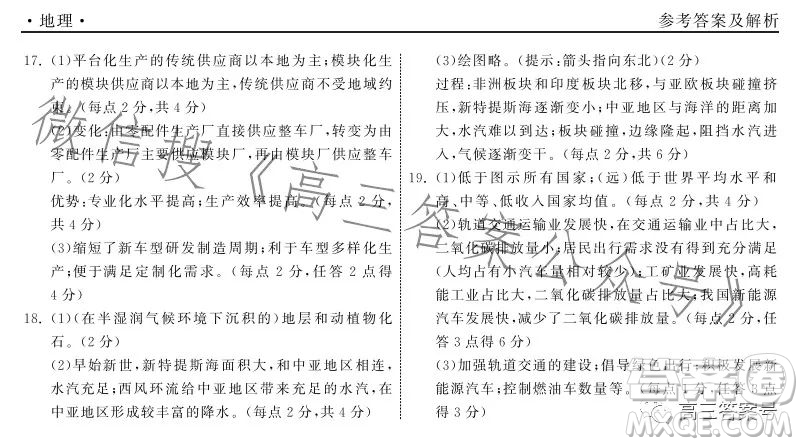 ·地理·
参考答案及解析
17. (1)平台化生产的传统供应商以本地为主;模块化生
产的模块供应商以本地为主,传统供应商不受地域约
束。(每点2分,共4分)
(2)变化:由零配件生产厂直接供应整车厂,转变为由
零配件生产厂主要供应模块厂,再由模块厂供应整车厂
。(2分)
优势:专业化水平提高;生产效率提高。(每点2分,
共4分)
(3)缩短了新车型研发制造周期;利于车型多样化生
产;便于满足定制化需求。(每点2分,任答2点得
4分)
18. (1)(在半湿润气候环境下沉积的)地层和动植物化
石。(4分)
(2)早始新世,新特提斯海面积大,和中亚地区相连,
水汽充足;西风环流给中亚地区带来充足的水汽,在
中亚地区形成较丰富的降水。(每点2分,共4分)
(3)绘图略。(提示:箭头指向东北)(2分)
过程:非洲板块和印度板块北移,与亚欧板块碰撞挤
压,新特提斯海逐渐变小;中亚地区与海洋的距离加
大,水汽难以到达;板块碰撞,边缘隆起,阻挡水汽进
入,气候逐渐变干。(每点2分,共6分)
19. (1)低于图示所有国家;(远)低于世界平均水平和
高、中等、低收入国家均值。(每点2分,共4分)
(2)轨道交通运输业发展快,在交通运输业中占比大,
二氧化碳排放量小;居民出行需求没有得到充分满足
(人均占有小汽车量相对较少);工矿业发展快,高耗
能工业占比大,二氧化碳排放量占比大;我国新能源
汽车发展快,减少了二氧化碳排放。(每点2分,任
答3点得6分)
(3)加强轨道交通的建设;倡导绿色出行;积极发展
新能源汽车;控制燃油车数量等。(每点1分,任答3点
得3分)
微信搜《高三答案公众号》
高三答案号